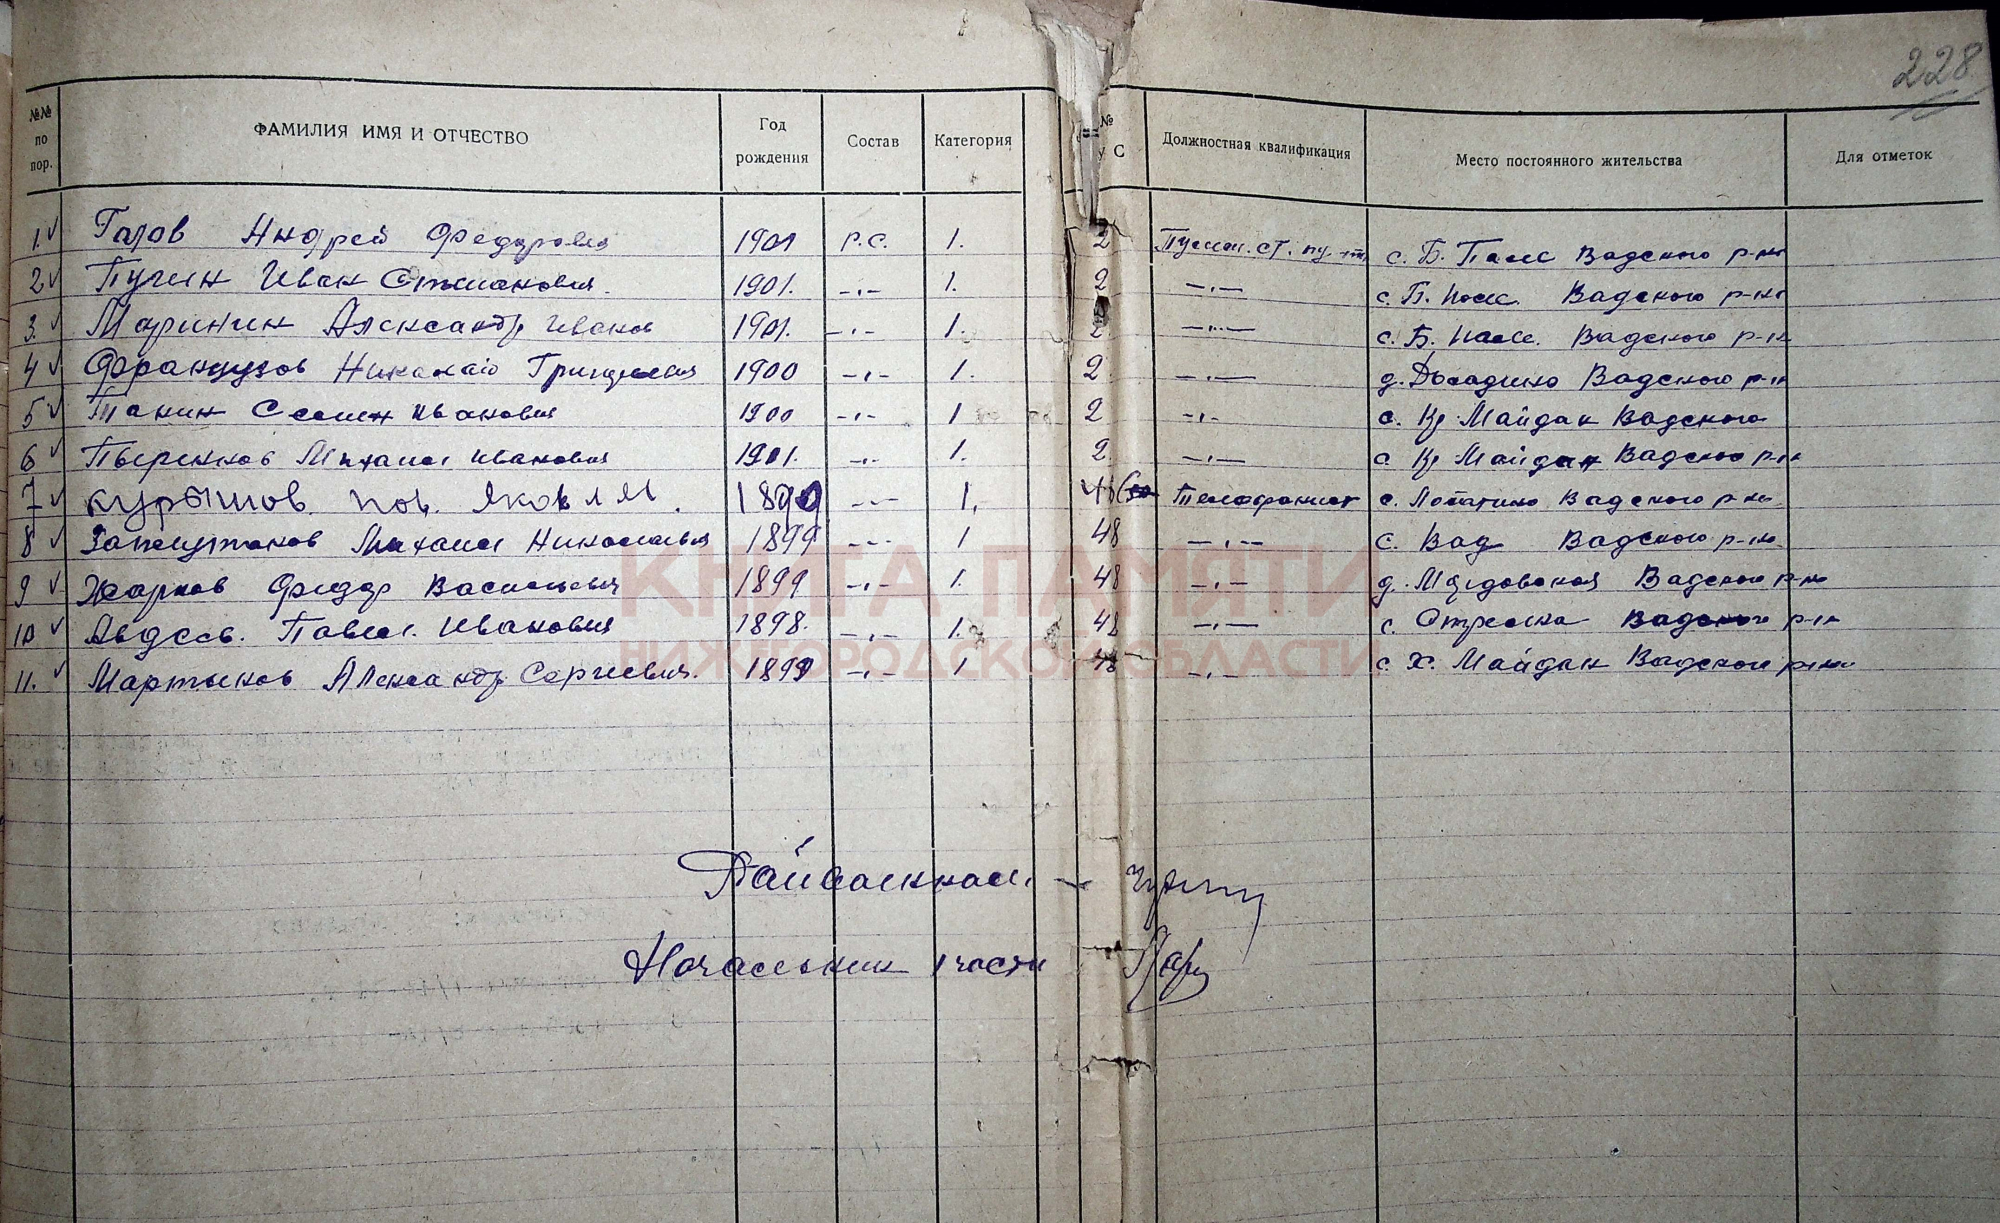 228
№№ по пор. ФАМИЛИЯ ИМЯ И ОТЧЕСТВО Год рождения Состав Категория № У С Должностная квалификация Место постоянного жительства Для отметок
1. Андрей 1901 р.с. 1. 2 с. Б. Вадского р-на
2 Пугин Иван 1901. -„- 1. 2 -„- с. Б. Вадского р-на
3. Маринин Александр Иванов 1901. -„- 1. 2 -„- с. Б. Вадского р-н
4 Французов Николай 1900 -„- 1. 2 -„- д. Вадского р-н
5 Танин Семен Иванович 1900 -„- 1 2 -„- с. Кр Майдан Вадского
6 Михаил Иванович 1901. -„- 1. 2 -„- с Кр Майдан Вадского р-н
7 Курышов. Яковл 1899 -„- 1. Телефонист с. Лопатино Вадского р-на
8 Михаил Николаевич 1899 -„- 1 48 -„- с. Вад Вадского р-на
9 Жарков Федор Васильевич 1899 -„- 1. 48 -„- д. Вадского р-на
10 Авдеев. Павел Иванович 1898. -„- 1. 48 -„- с. Стрелка Вадского р-н
11. Мартынов Александр Сергеевич. 1899 -„- 1 48 -„- с. Х. Майдан Вадского р-на
КНИГА ПАМЯТИ
НИЖГОРОДСКОЙ ОБЛАСТИ
Райвоенком. -
Начальник 1 части